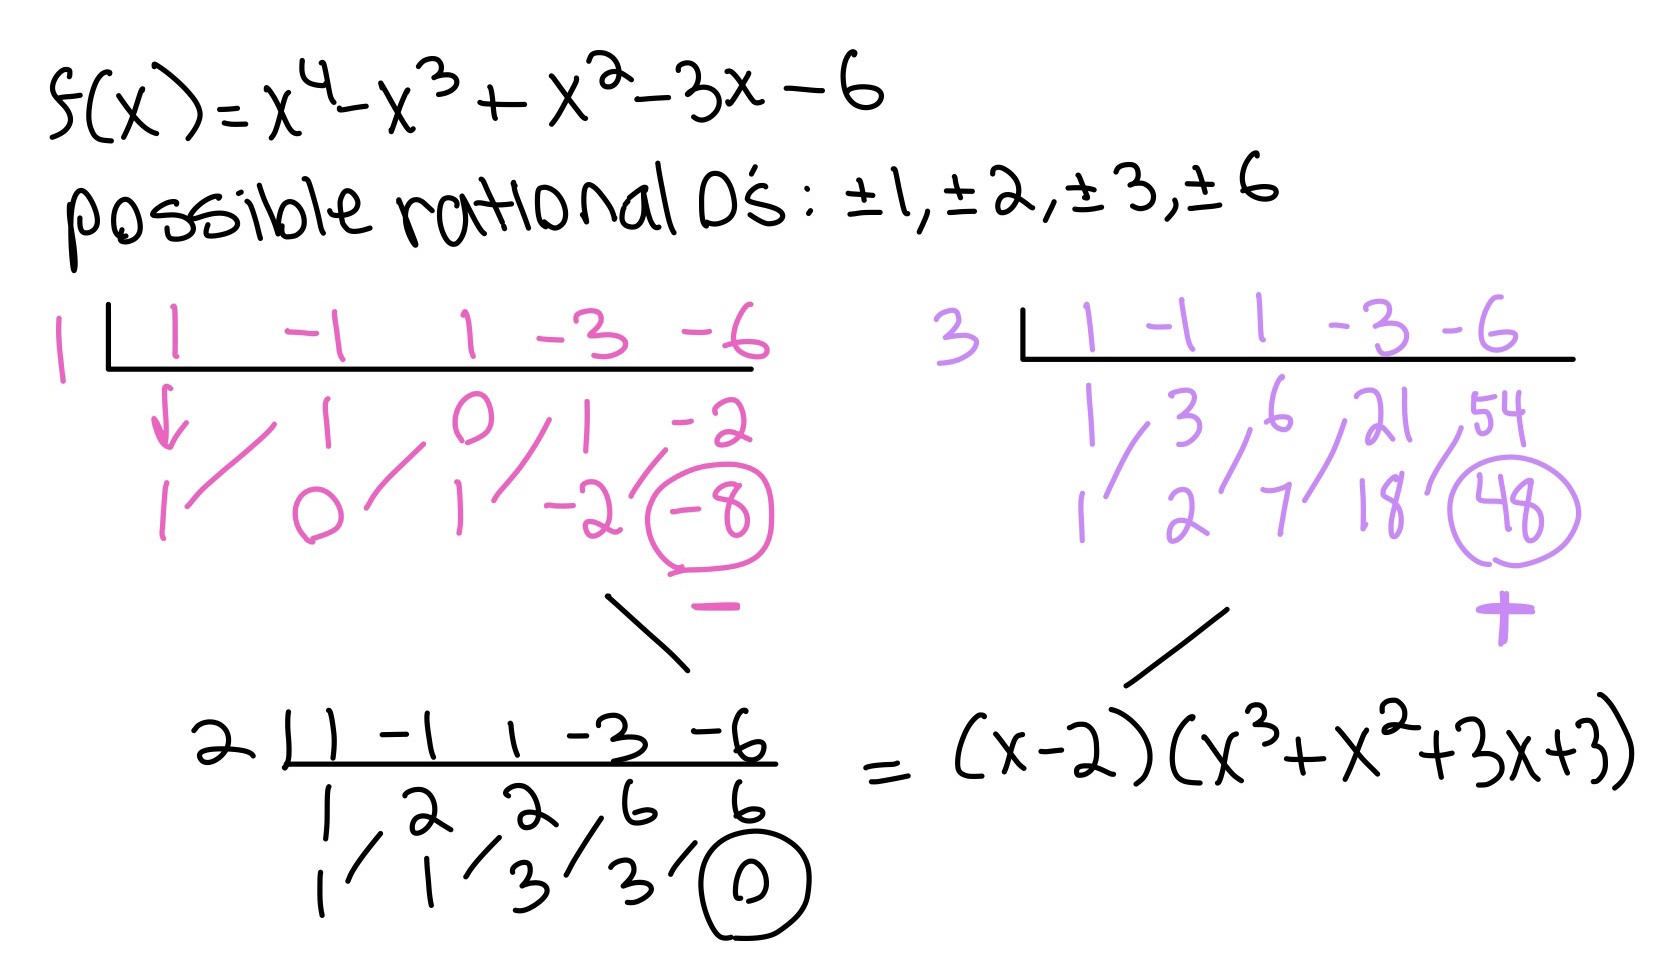 f(x) = x⁴ - x³ + x² - 3x - 6
possible rational 0's : ±1, ±2, ±3, ±6
1 | 1 -1 1 -3 -6
↓ 1 0 1 -2
1 0 1 -2 -8
-
3 | 1 -1 1 -3 -6
1 3 6 21 54
1 2 7 18 48
+
2 | 1 -1 1 -3 -6
1 2 2 6 6
1 1 3 3 0
= (x-2)(x³+x²+3x+3)